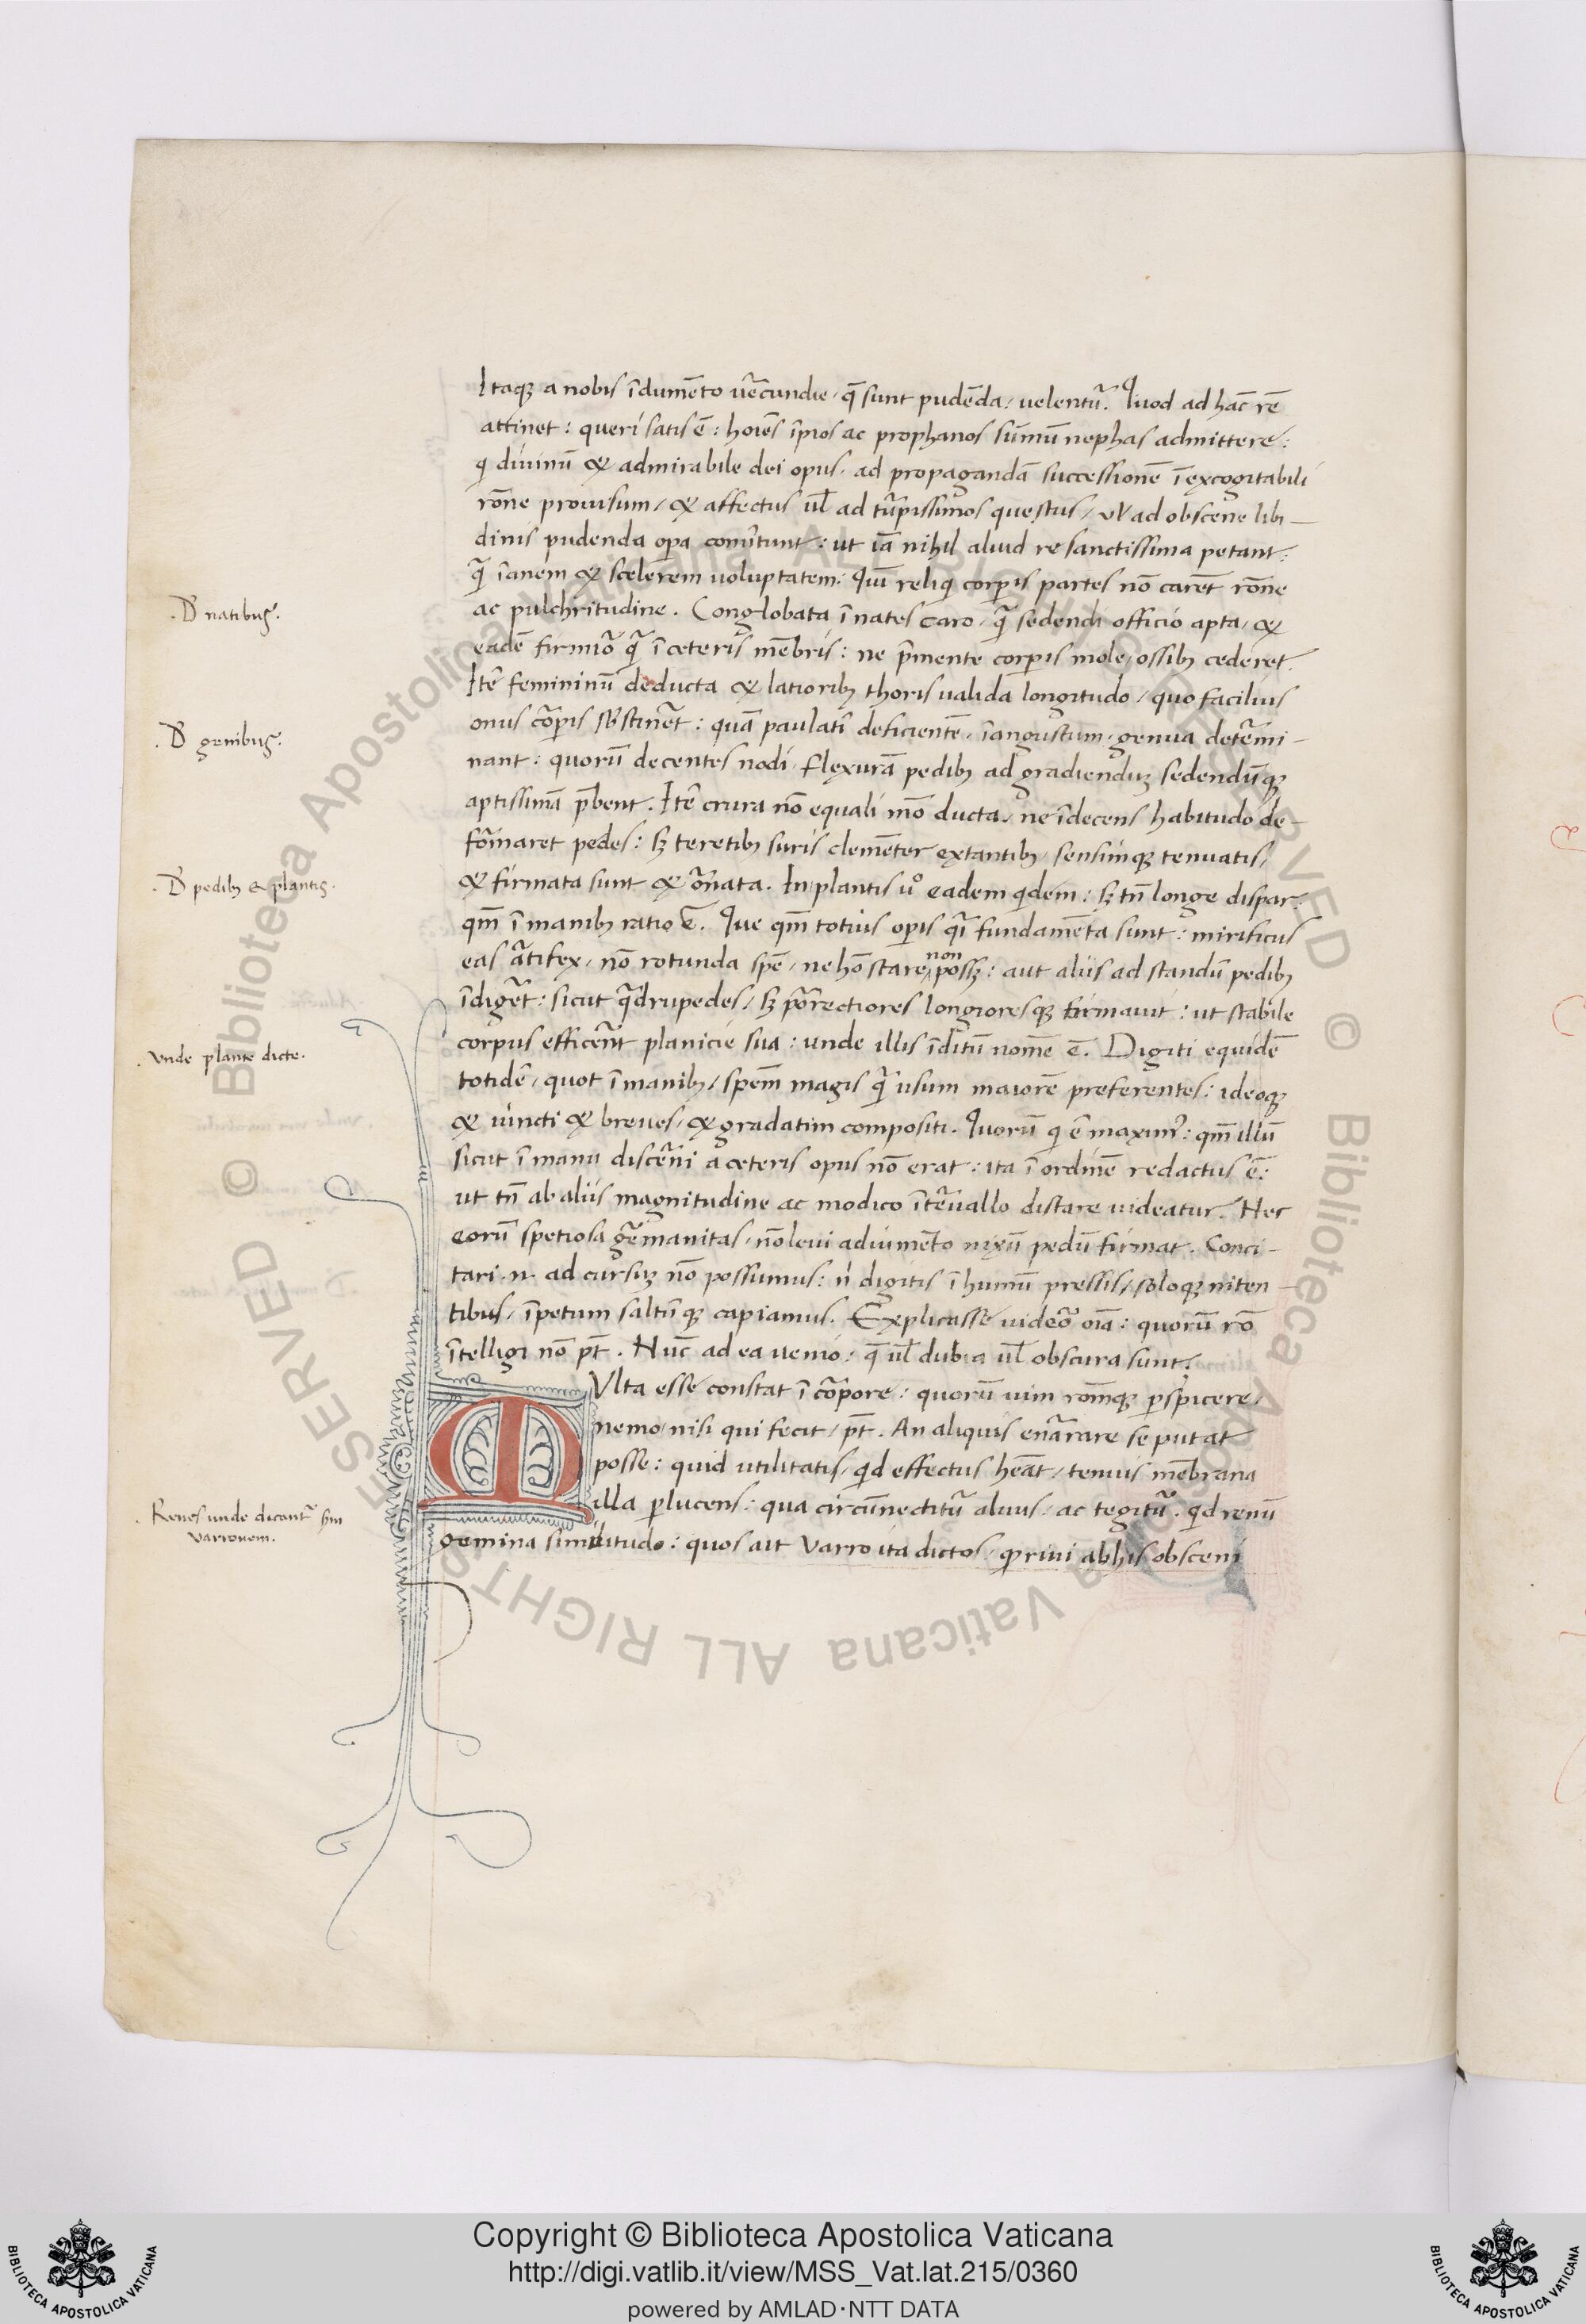 Itaq̃ a nobis ĩdumẽto ũecundie, q̃ sunt pudẽda, velentũ. Quod ad hãc rẽ
attinet: queri satis ẽ: hoĩes ĩpios ac prophanos sũmũ nephas admittere:
q divinũ & admirabile dei opus, ad propagandã successionẽ ĩexcogitabili
rõne provisum, & affectus ul̃ ad tũrpissimos questus, vl̃ ad obscene libi-
dinis pudenda opa convertunt: ut iã nihil aliud re sanctissima petant:
q̃ ĩanem & scelerem voluptatem. Quĩ reliq corpis partes nõ carẽt rõne
ac pulchritudine. Conglobata ĩ nates caro, q̃ sedendi officio apta, &
eadẽ firmiõ q̃ ĩ ceteris mẽbris: ne p̃mente corpis mole, ossib; cederet.
Itẽ femininũ deducta & latiorib; thoris valida longitudo, quo facilius
onus cõpis sustinẽt: quã paulatĩ deficientẽ, ĩangustum, genua detẽmi-
nant: quorũ decentes nodi, flexurã pedib; ad gradienduʒ sedendũq̃
aptissimã p̃bent. Itẽ crura nõ equali mõ ducta, ne ĩdecens habitudo de-
fõmaret pedes: sʒ teretib; suris clemẽter extantib;, sensimq̃ tenuatis,
& firmata sunt & õnata. In plantis uº eadem qdem: sʒ tñ longe dispar,
qm̃ ĩ manib; ratio ẽ. Que qm̃ totius opis q̃i fundamẽta sunt: mirificus
eas ãtifex, nõ rotunda spẽ, ne hõ stare non possʒ: aut aliis ad standũ pedib;
ĩdigẽt: sicut q̃drupedes, sʒ põrectiores longioresq̃ firmavit: ut stabile
corpus efficẽnt planicie sua: unde illis ĩditũ nomẽ ẽ. Digiti equidẽ
totidẽ, quot ĩ manib;, spẽm magis q̃ usum maiorẽ preferentes: ideoq̃
& iuncti & breves, & gradatim compositi. Quorũ q ẽ maximꝰ: qm̃ illũ
sicut ĩ manu discẽni a ceteris opus nõ erat: ita ĩ ordinẽ redactus ẽ:
ut tñ ab aliis magnitudine ac modico ĩtẽvallo distare videatur. Hec
eorũ spetiosa gẽmanitas, nõ levi adiumẽto nixũ pedũ firmat. Conci-
tari .n. ad cursuʒ nõ possumus: ñ digitis ĩ humũ pressis, soloq̃ niten-
tibus, ĩpetum saltũq̃ capiamus. Explicasse videõ oĩa: quorũ rõ
ĩtelligi nõ pt̃. Nũc ad ea venio: q̃ ul̃ dubia ul̃ obscura sunt.
MUlta esse constat ĩ cõpore: quorũ vim rõmq̃ pspicere,
nemo, nisi qui fecit, pt̃. An aliquis enãrare se putat
posse: quid utilitatis, qd effectus heãt, tenuis mẽbrana
illa plucens: qua circũnectitũ alvus, ac tegitũ. qd renũ
gemina similitudo: quos ait Varro ita dictos, q rivi ab his obsceni
.D̃ natibus.
.D̃ genibus.
.D̃ pedib; & plantis.
.Unde plante dicte.
.Renes unde dicantũ sm
Varronem.
© Biblioteca Apostolica Vaticana ALL RIGHTS RESERVED © Biblioteca Apostolica Vaticana ALL RIGHTS RESERVED
Copyright © Biblioteca Apostolica Vaticana
http://digi.vatlib.it/view/MSS_Vat.lat.215/0360
powered by AMLAD·NTT DATA
BIBLIOTECA APOSTOLICA VATICANA
BIBLIOTECA APOSTOLICA VATICANA